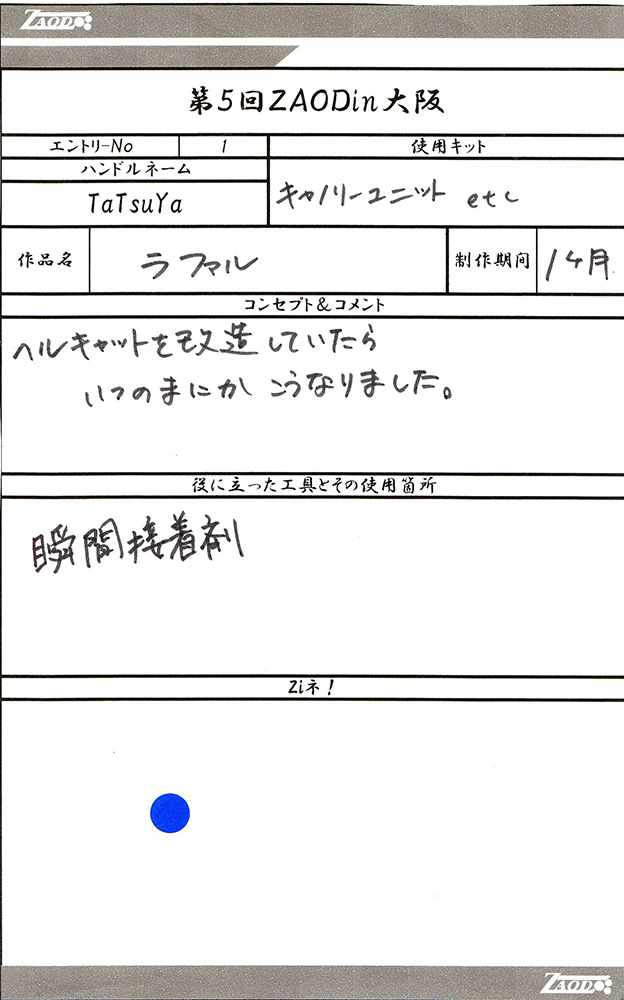 ZAOD
第5回ZAODin大阪
エントリ-No 1
使用キット
ハンドルネーム
TaTsuYa
キャノリーユニット etc
作品名 ラファル
制作期間 1ヶ月
コンセプト&コメント
ヘルキャットを改造していたら
いつのまにかこうなりました。
役に立った工具とその使用箇所
瞬間接着剤
Ziネ!
ZAOD